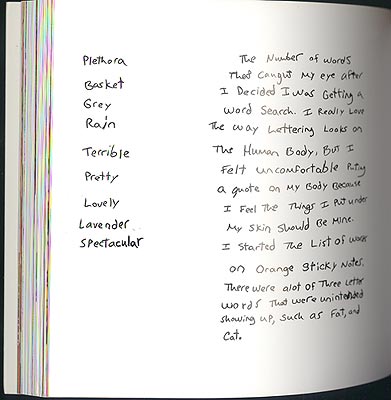 Plethora
Basket
Grey
Rain
Terrible
Pretty
Lovely
Lavender
Spectacular
The Number of words
That caught My eye after
I Decided I Was Getting a
Word Search. I Really Love
The way Lettering Looks on
The Human Body, But I
Felt uncomfortable Puting
a quote on My Body Because
I Feel The Things I Put under
My Skin Should Be Mine.
I Started The List of words
on Orange Sticky Notes.
There were alot of Three Letter
words That were unintended
showing up, such as Fat, and
Cat.